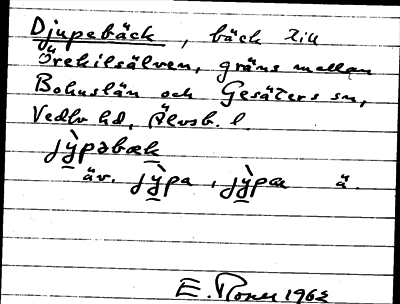 Djupebäck, bäck till
Örekilsälven, gräns mellan
Bohuslän och Gesäters sn,
Vedbo hd, Älvsb. l.
jỳpəbæk
äv. jỳpa, jỳpæ ä.
E. 1962